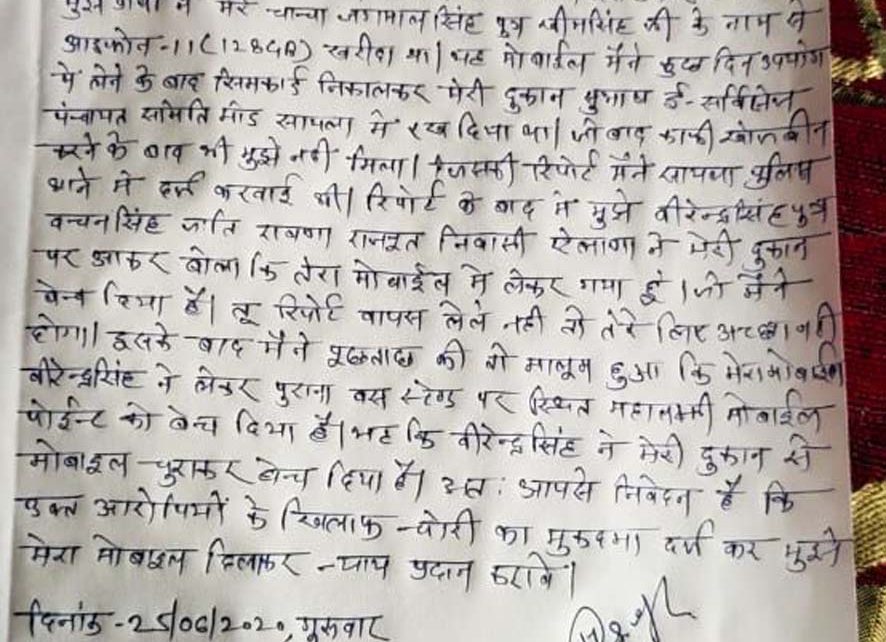 मेरे चाचा जगमाल सिंह पुत्र भीमसिंह जी के नाम से
आइफोन-11(128GB) खरीदा था। यह मोबाईल मैने कुछ दिन उपयोग
मे लेने के बाद सिमकार्ड निकालकर मेरी दुकान सुभाष ई-सर्विसेज
पंचायत समिति रोड सायला मे रख दिया था। जो बाद काफी खोजबीन
करने के बाद भी मुझे नही मिला। जिसकी रिपोर्ट मैंने सायला पुलिस
थाने मे दर्ज करवाई थी। रिपोर्ट के बाद मे मुझे वीरेन्द्रसिंह पुत्र
वचनसिंह जाति रावणा राजपूत निवासी ऐलाणा ने मेरी दुकान
पर आकर बोला कि तेरा मोबाईल मे लेकर गया हूं। जो मैंने
बेच दिया है। तू रिपोर्ट वापस लेले नही तो तेरे लिए अच्छा नही
होगा। इसके बाद मैंने पूछताछ की तो मालूम हुआ कि मेरा मोबाईल
वीरेन्द्रसिंह ने लेकर पुराना बस स्टेण्ड पर स्थित महालक्ष्मी मोबाईल
पोईन्ट को बेच दिया है। यह कि वीरेन्द्रसिंह ने मेरी दुकान से
मोबाइल चुराकर बेच दिया है। अत: आपसे निवेदन है कि
उक्त आरोपियों के खिलाफ चोरी का मुकदमा दर्ज कर मुझे
मेरा मोबाइल दिलाकर न्याय प्रदान करावे।
दिनांक-25/06/2020, गुरूवार